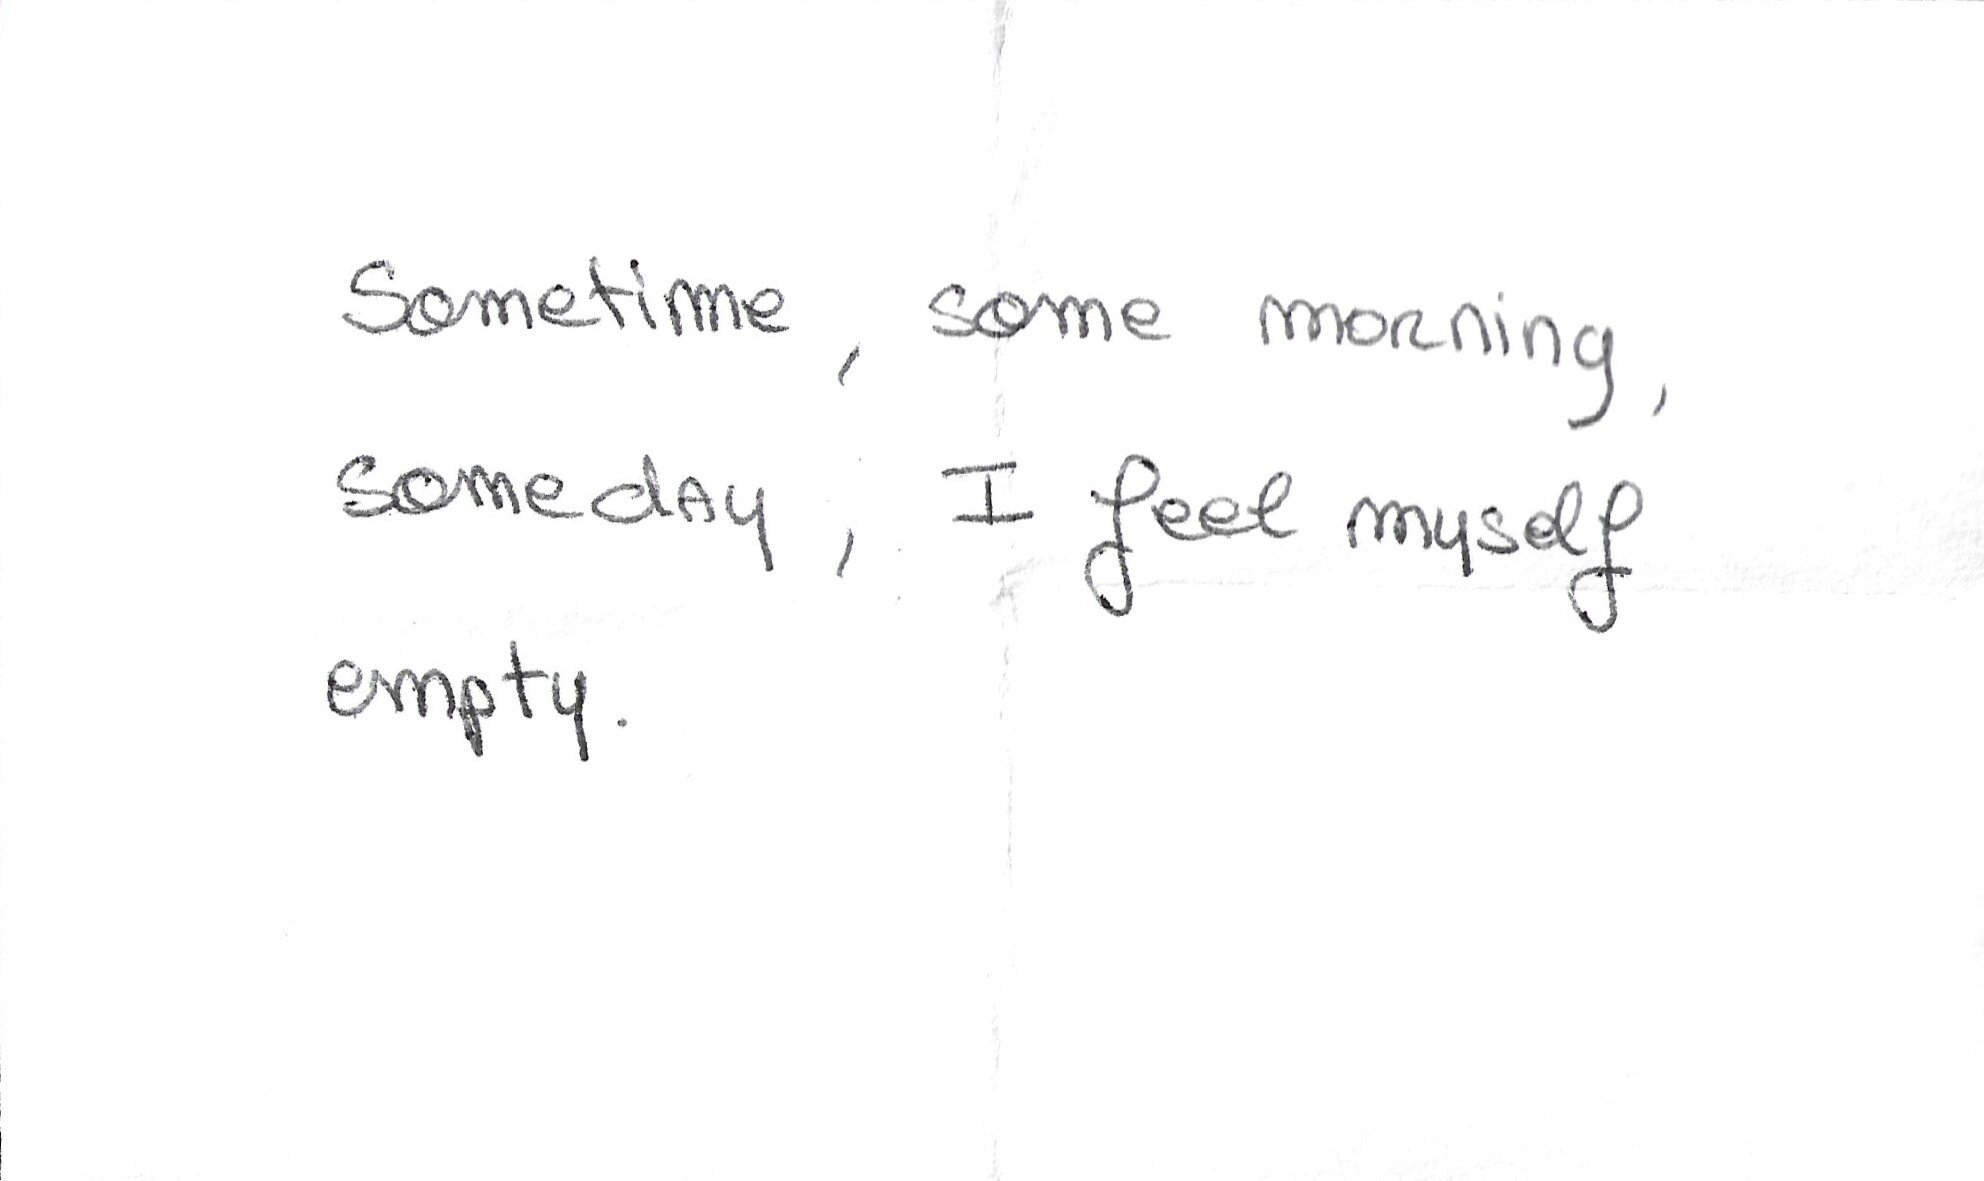 Sometime, some morning,
someday, I feel myself
empty.